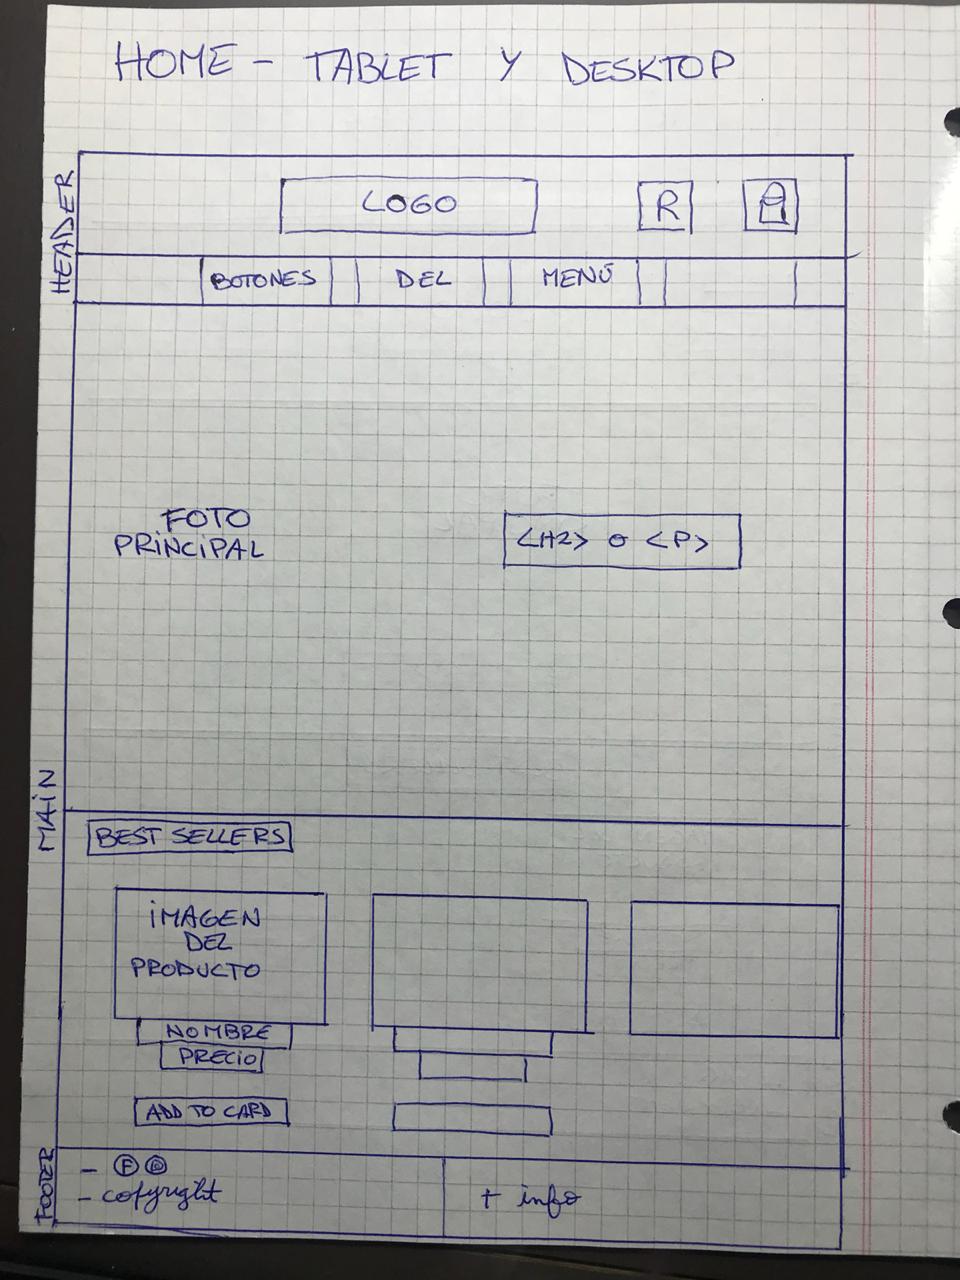 HOME - TABLET Y DESKTOP
HEADER
LOGO
R
BOTONES DEL MENÚ
FOTO
PRINCIPAL
<H2> O <P>
MAIN
BEST SELLERS
IMAGEN
DEL
PRODUCTO
NOMBRE
PRECIO
ADD TO CARD
FOOTER
- F
- copyright
+ info